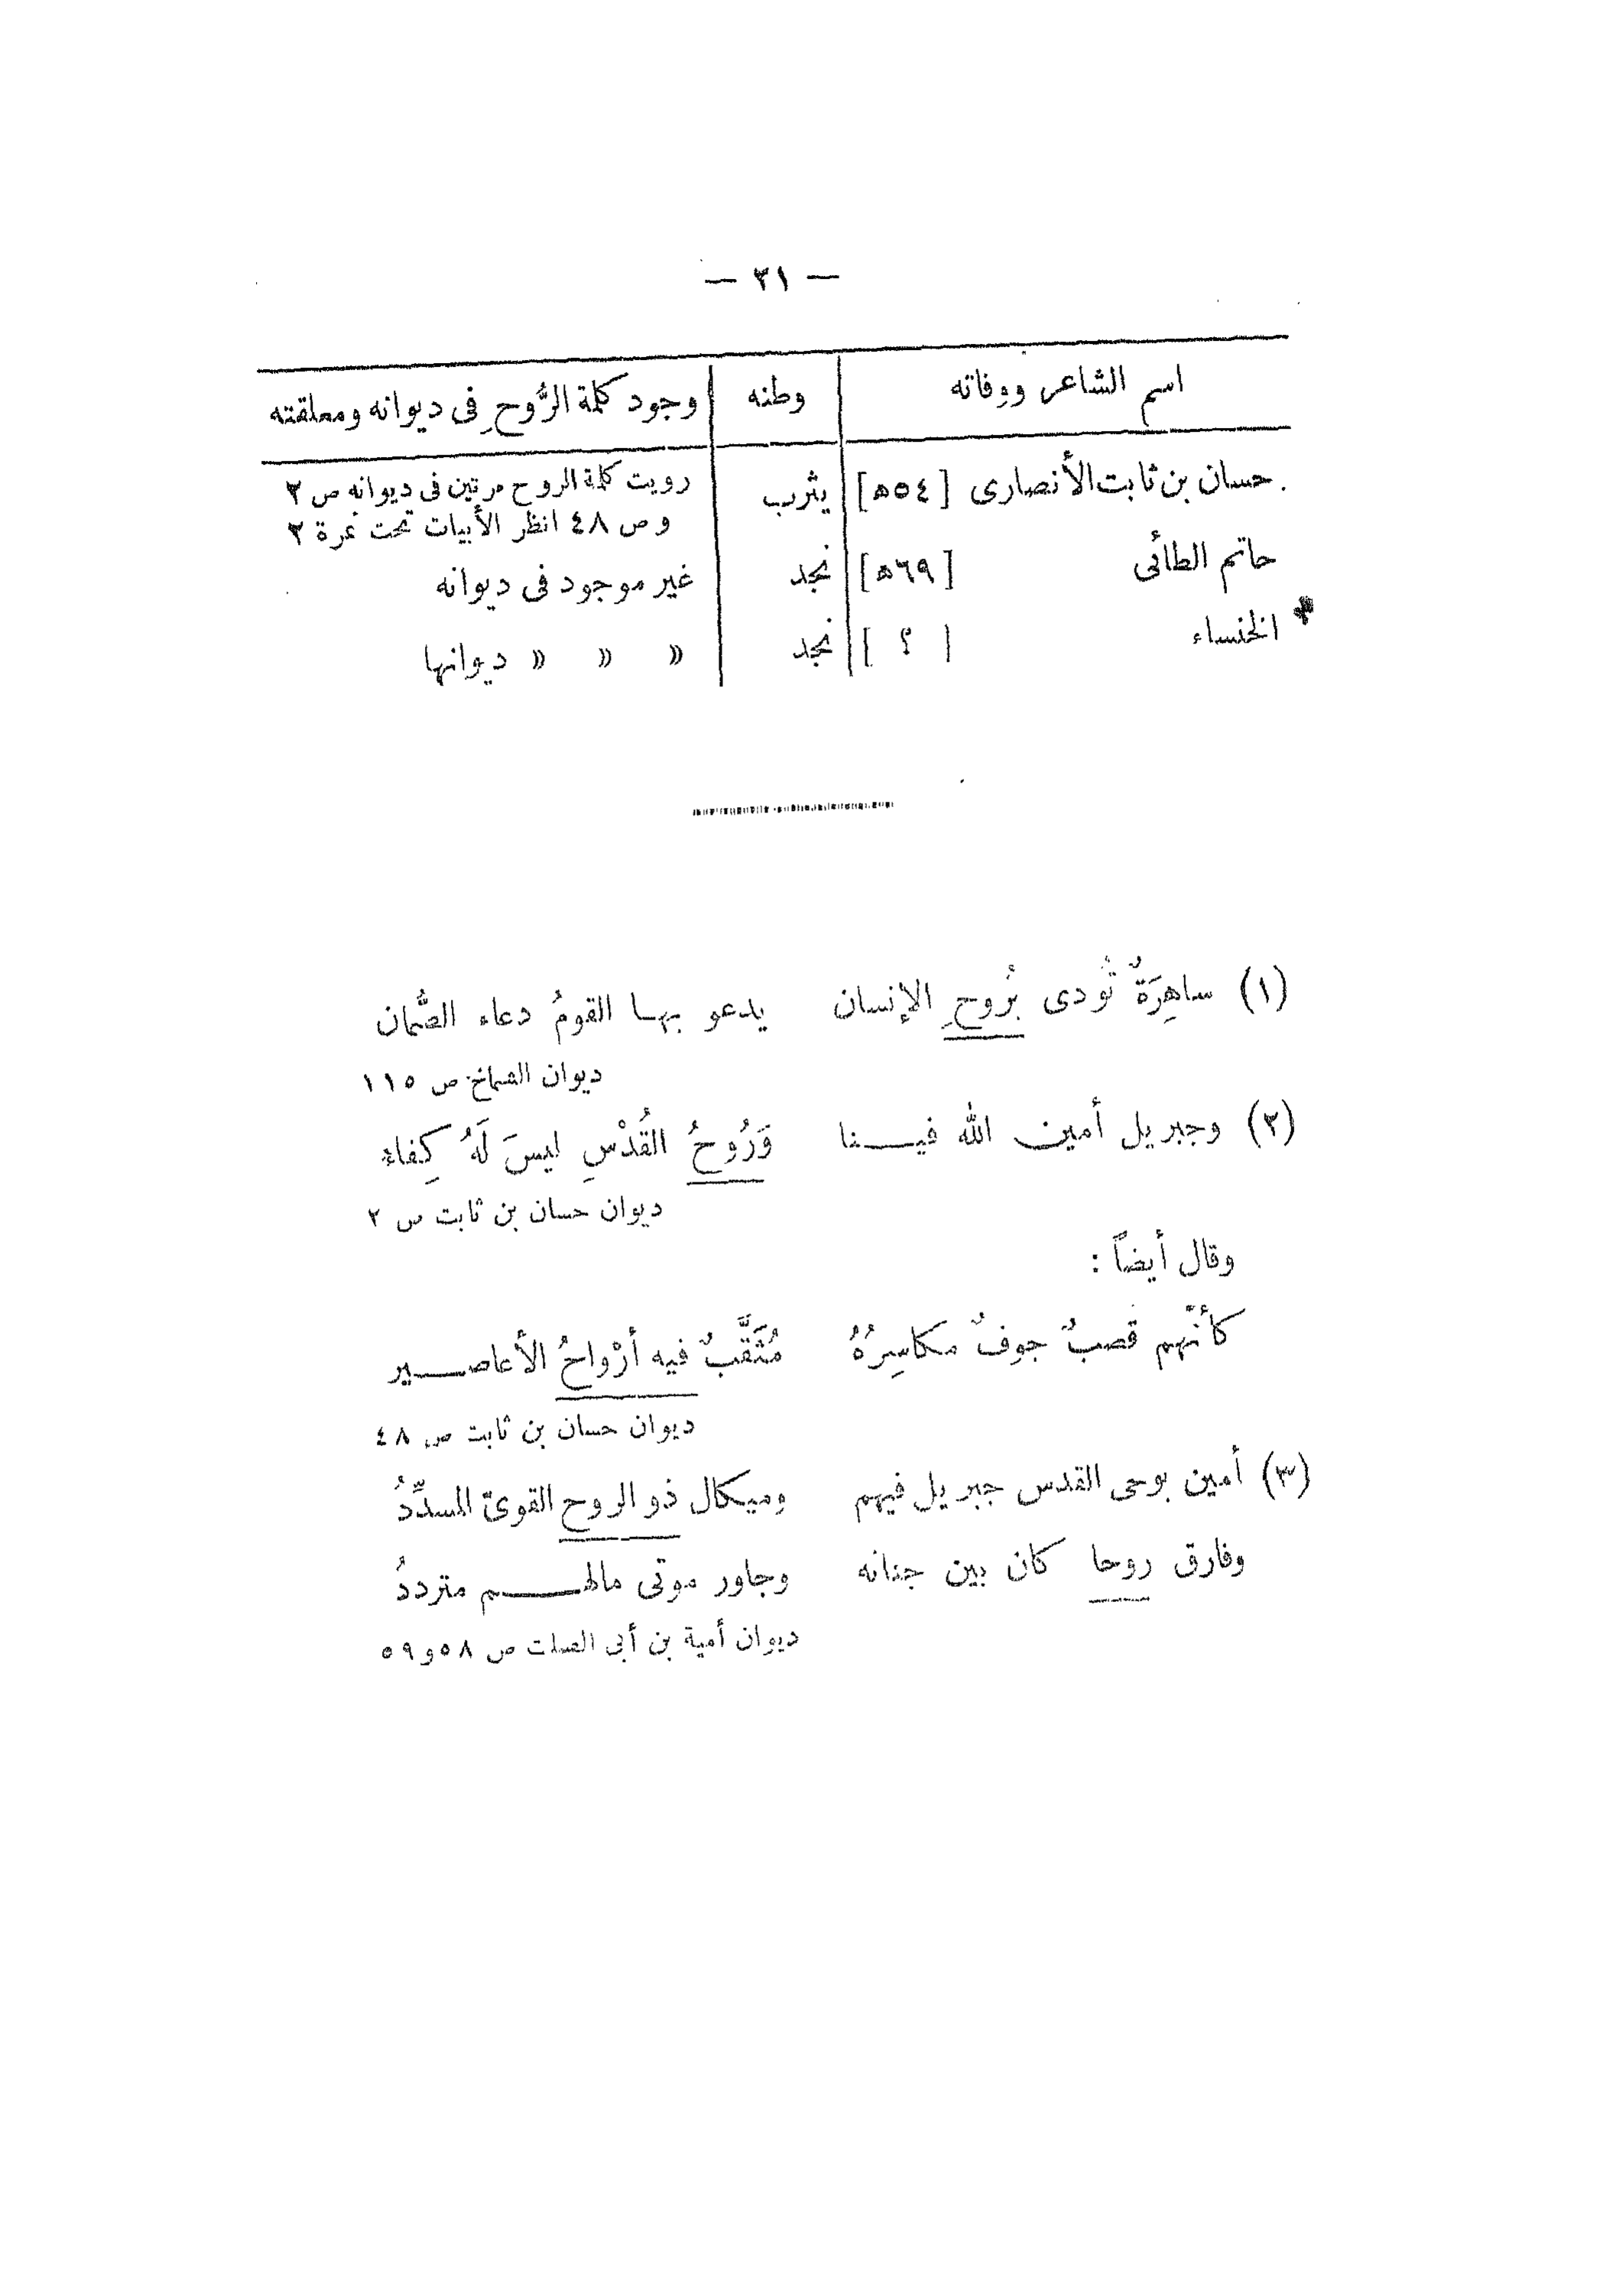 — ٣١ —
اسم الشاعر ووفاته وطنه وجود كلمة الرُّوحِ فى ديوانه ومعلقته
حسان بن ثابت الأنصارى [٥٤ھ] يثرب رويت كلمة الروح مرتين فى ديوانه ص ٢
و ص ٤٨ انظر الأبيات تحت نمرة ٢
حاتم الطائى [٦٩ھ] نجد غير موجود فى ديوانه
الخنساء [ ؟ ] نجد » » » ديوانها
(١) ساهِرَةٌ تُودى بُروحِ الإنسان يدعو بها القومُ دعاء الصُّمان
ديوان الشماخ ص ١١٥
(٢) وجبريل أمين الله فينا وَرُوحُ القُدْسِ ليسَ لَهُ كِفاء
ديوان حسان بن ثابت ص ٢
وقال أيضاً :
كأنّهم قصبٌ جوفٌ مكاسِرُهُ مُثَقَّبٌ فيه أرْواحُ الأعاصير
ديوان حسان بن ثابت ص ٤٨
(٣) أمين بوحى القدس جبريل فيهم وميكال ذو الروح القوىّ المسدِّدُ
وفارق روحا كان بين جنانه وجاور موتى مالهم مترددُ
ديوان أمية بن أبى الصلت ص ٥٨ و ٥٩